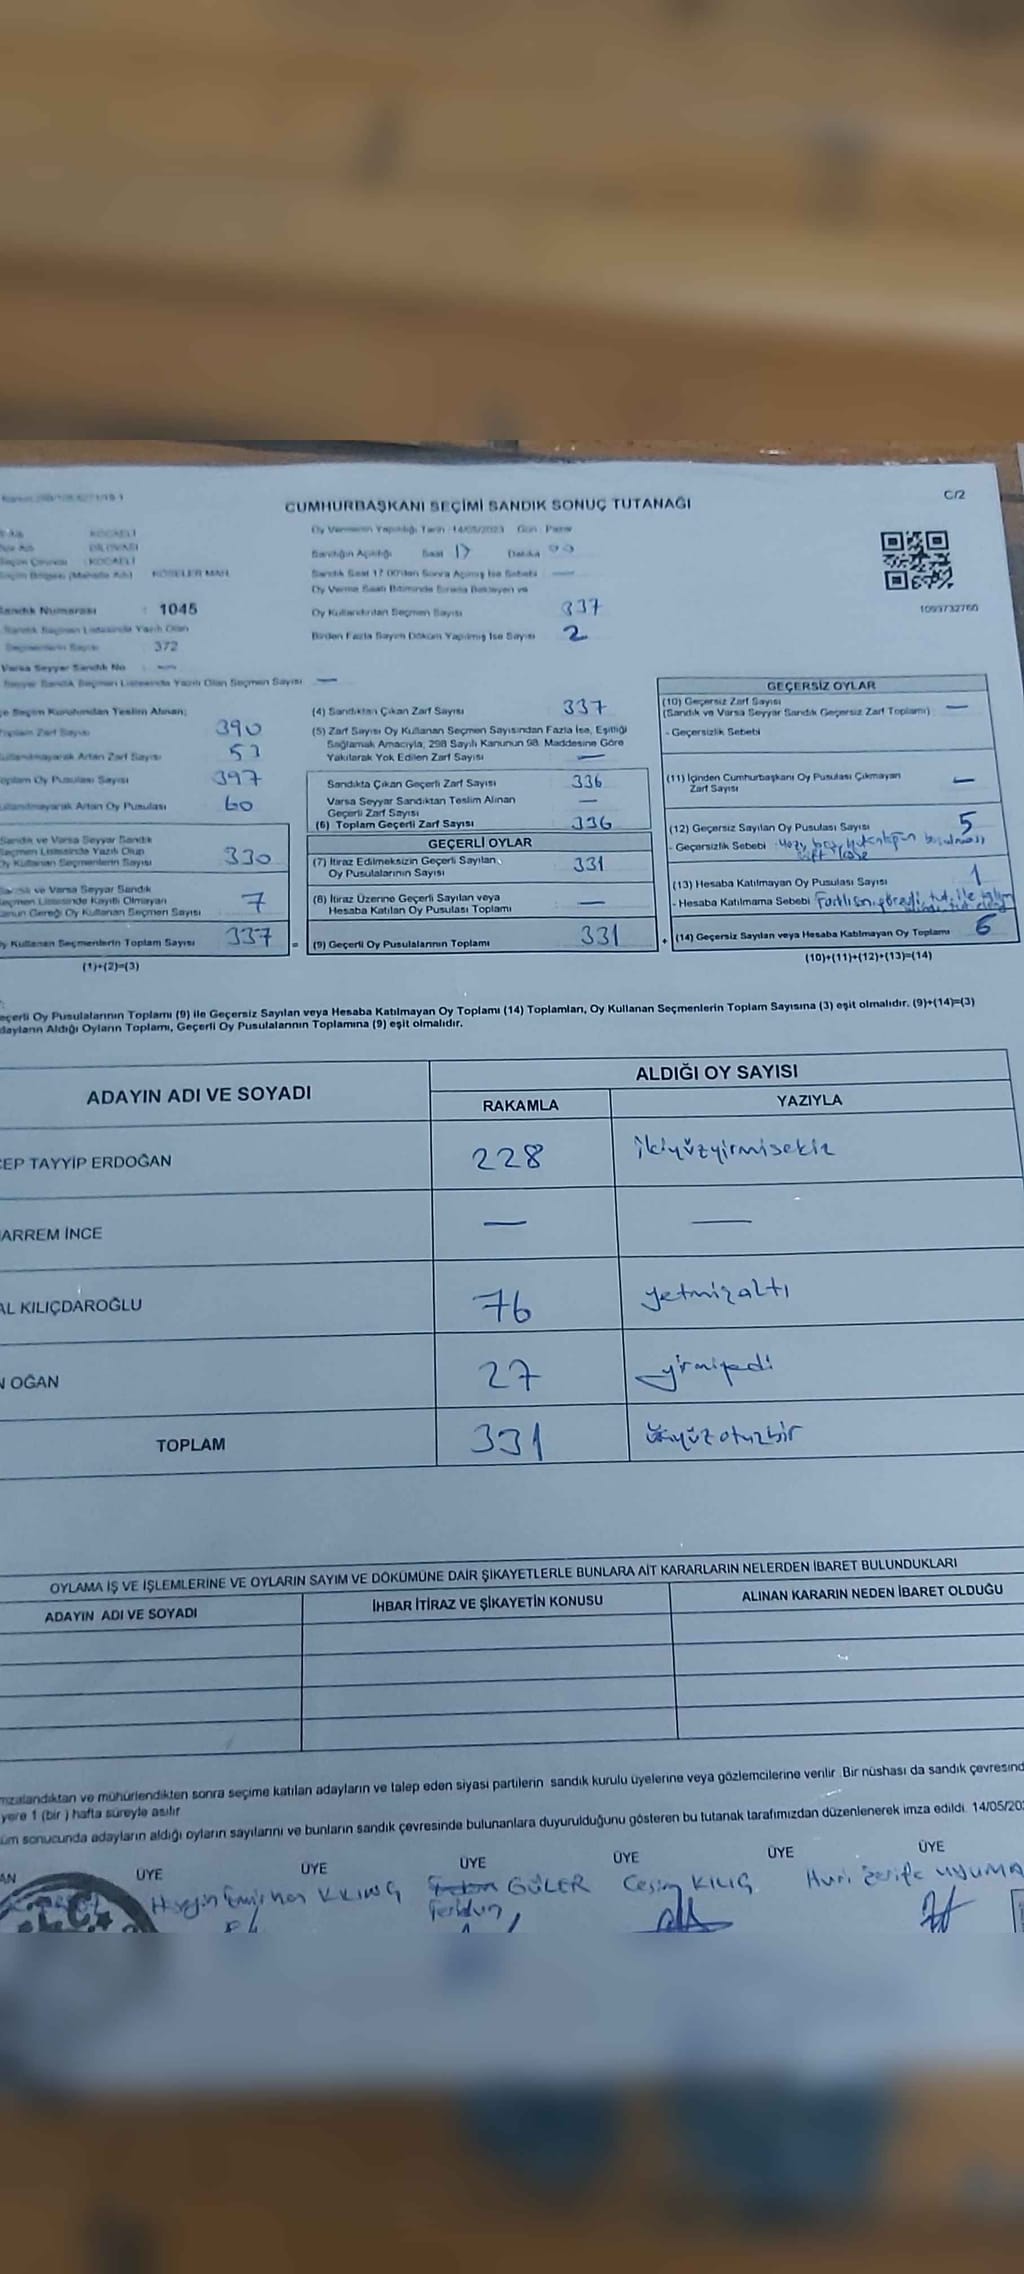 C/2
CUMHURBAŞKANI SEÇİMİ SANDIK SONUÇ TUTANAĞI
KOCAELİ
Oy Vermenin Yapıldığı Tarih : 14/05/2023 Gün : Pazar
DİLOVASI
Sandığın Açıldığı Saat 17 Dakika 00
KOCAELİ
KÖSELER MAH.
Sandık Saat 17.00'den Sonra Açılmış İse Sebebi —
Oy Verme Saati Bitiminde Sırada Bekleyen ve
Sandık Numarası : 1045
Oy Kullandırılan Seçmen Sayısı 337
1093732760
Sandık Seçmen Listesinde Yazılı Olan
Seçmenlerin Sayısı 372
Birden Fazla Sayım Döküm Yapılmış İse Sayısı 2
Varsa Seyyar Sandık No : —
Seyyar Sandık Seçmen Listesinde Yazılı Olan Seçmen Sayısı —
Seçim Kurulundan Teslim Alınan;
Toplam Zarf Sayısı 390
Kullanılmayarak Artan Zarf Sayısı 53
Toplam Oy Pusulası Sayısı 397
Kullanılmayarak Artan Oy Pusulası 60
Sandık ve Varsa Seyyar Sandık
Seçmen Listesinde Yazılı Olup
Oy Kullanan Seçmenlerin Sayısı 330
Sandık ve Varsa Seyyar Sandık
Seçmen Listesinde Kayıtlı Olmayan
Kanun Gereği Oy Kullanan Seçmen Sayısı 7
Oy Kullanan Seçmenlerin Toplam Sayısı 337 =
(1)+(2)=(3)
(4) Sandıktan Çıkan Zarf Sayısı 337
(5) Zarf Sayısı Oy Kullanan Seçmen Sayısından Fazla İse, Eşitliği
Sağlamak Amacıyla, 298 Sayılı Kanunun 98. Maddesine Göre
Yakılarak Yok Edilen Zarf Sayısı —
Sandıkta Çıkan Geçerli Zarf Sayısı 336
Varsa Seyyar Sandıktan Teslim Alınan
Geçerli Zarf Sayısı —
(6) Toplam Geçerli Zarf Sayısı 336
GEÇERLİ OYLAR
(7) İtiraz Edilmeksizin Geçerli Sayılan
Oy Pusulalarının Sayısı 331
(8) İtiraz Üzerine Geçerli Sayılan veya
Hesaba Katılan Oy Pusulası Toplamı —
(9) Geçerli Oy Pusulalarının Toplamı 331 +
GEÇERSİZ OYLAR
(10) Geçersiz Zarf Sayısı
(Sandık ve Varsa Seyyar Sandık Geçersiz Zarf Toplamı) —
- Geçersizlik Sebebi
(11) İçinden Cumhurbaşkanı Oy Pusulası Çıkmayan
Zarf Sayısı —
(12) Geçersiz Sayılan Oy Pusulası Sayısı 5
- Geçersizlik Sebebi
(13) Hesaba Katılmayan Oy Pusulası Sayısı 1
- Hesaba Katılmama Sebebi
(14) Geçersiz Sayılan veya Hesaba Katılmayan Oy Toplamı 6
(10)+(11)+(12)+(13)=(14)
eçerli Oy Pusulalarının Toplamı (9) ile Geçersiz Sayılan veya Hesaba Katılmayan Oy Toplamı (14) Toplamları, Oy Kullanan Seçmenlerin Toplam Sayısına (3) eşit olmalıdır. (9)+(14)=(3)
dayların Aldığı Oyların Toplamı, Geçerli Oy Pusulalarının Toplamına (9) eşit olmalıdır.
ADAYIN ADI VE SOYADI
ALDIĞI OY SAYISI
RAKAMLA YAZIYLA
CEP TAYYİP ERDOĞAN 228 ikiyüzyirmisekiz
ARREM İNCE — —
AL KILIÇDAROĞLU 76 yetmişaltı
N OĞAN 27 yirmiyedi
TOPLAM 331 üçyüzotuzbir
OYLAMA İŞ VE İŞLEMLERİNE VE OYLARIN SAYIM VE DÖKÜMÜNE DAİR ŞİKAYETLERLE BUNLARA AİT KARARLARIN NELERDEN İBARET BULUNDUKLARI
ADAYIN ADI VE SOYADI İHBAR İTİRAZ VE ŞİKAYETİN KONUSU ALINAN KARARIN NEDEN İBARET OLDUĞU
mzalandıktan ve mühürlendikten sonra seçime katılan adayların ve talep eden siyasi partilerin sandık kurulu üyelerine veya gözlemcilerine verilir. Bir nüshası da sandık çevresind
yere 1 (bir ) hafta süreyle asılır.
üm sonucunda adayların aldığı oyların sayılarını ve bunların sandık çevresinde bulunanlara duyurulduğunu gösteren bu tutanak tarafımızdan düzenlenerek imza edildi. 14/05/202
AN ÜYE ÜYE ÜYE ÜYE ÜYE ÜYE
GÜLER
Feridun
KILIÇ